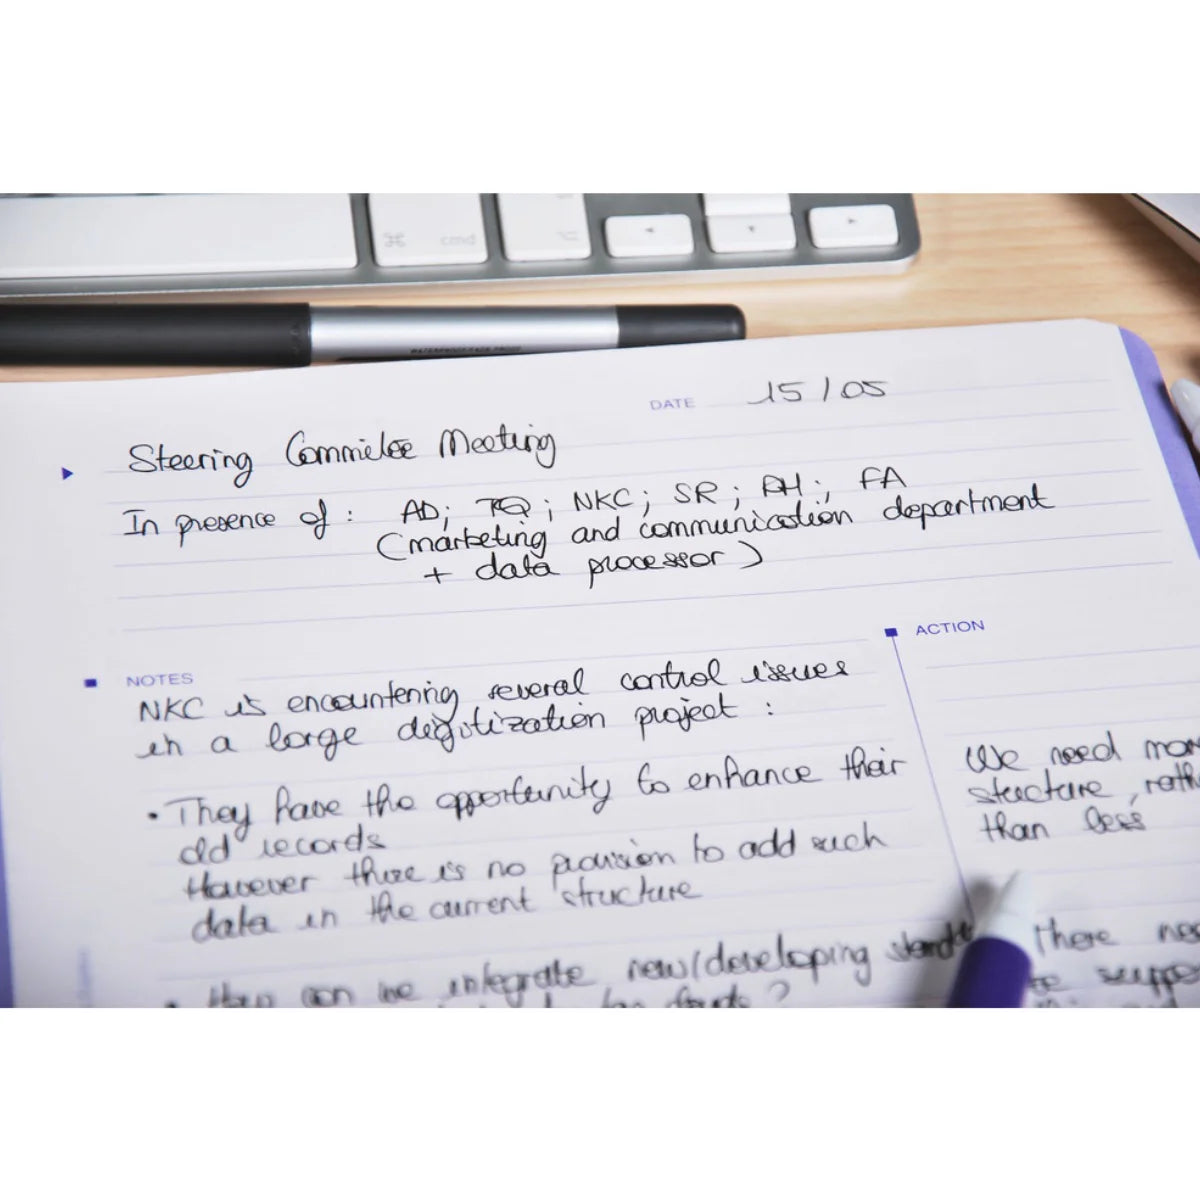 ⌘ cmd
⌥
DATE 15/05
Steering Commitee Meeting
In presence of : AD; TQ; NKC; SR; RH; FA
(marketing and communication department
+ data processor)
NOTES
NKC is encountering several control issues
in a large degitization project :
• They have the opportunity to enhance their
old records
However there is no provision to add such
data in the current structure
• How can we integrate new/developing
ACTION
We need
structure,
than less
There